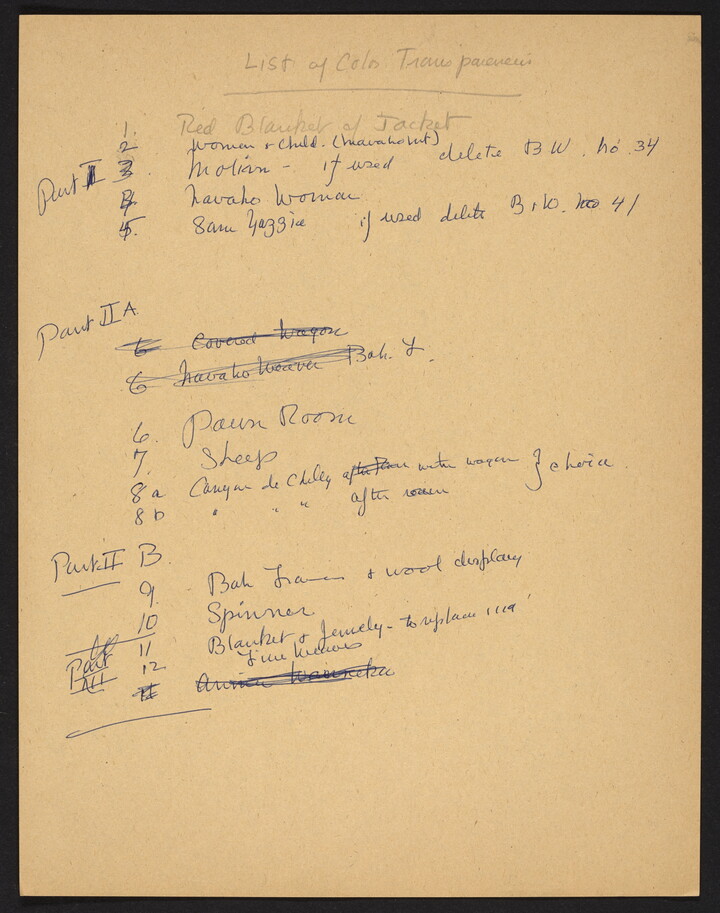 List of Color Transparencies
1. Red Blanket of Jacket
2 Woman & Child. (Navaho
Part I 3. Motion - if used delete B W. no. 34
4. Navaho Woman
5. Sam Yazzie if used delete B & W. no 41
Part II A
6 Covered Wagon
6 Navaho Weaver Bah. F.
6. Pawn Room
7. Sheep
8 a Canyon de Chelly after rain with wagon } choice
8 b " " " after rain
Part II B
9. Bah Francis & wool display
10 Spinner
11 Blanket & Jewelry - to replace 119
Part III 12 Fine Weaves